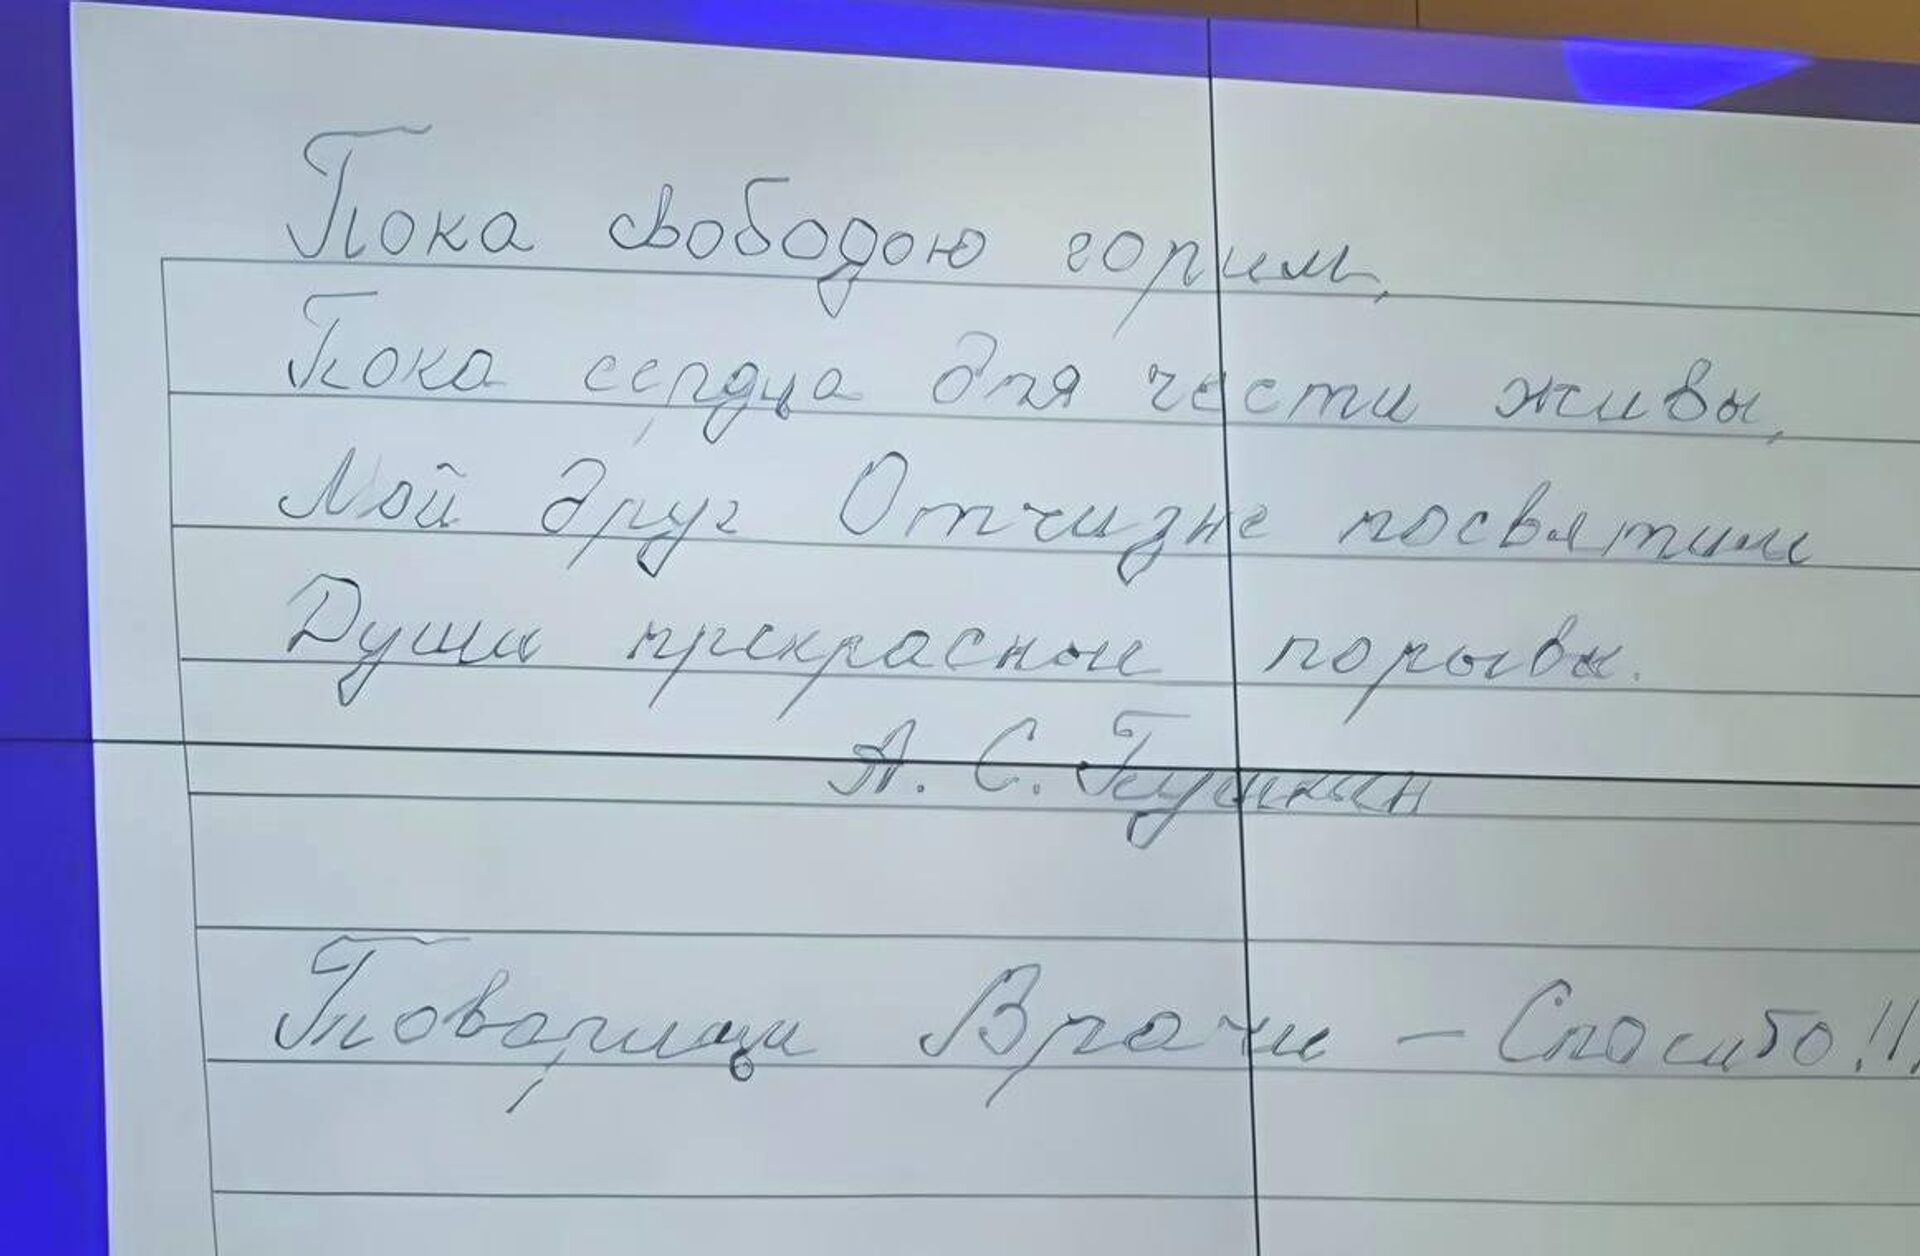 Пока свободою горим,
Пока сердца для чести живы,
Мой друг Отчизне посвятим
Души прекрасные порывы.
А. С. Пушкин
Товарищи Врачи - Спасибо!!!